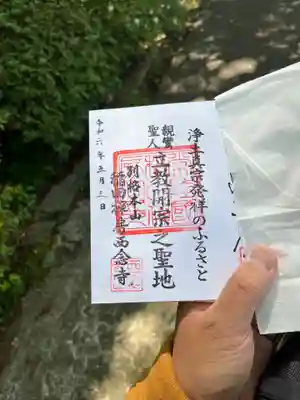 浄土真宗発祥のふるさと
親鸞
聖人
立教開宗之聖地
別格本山
稲田禅房西念寺
令和六年五月三日